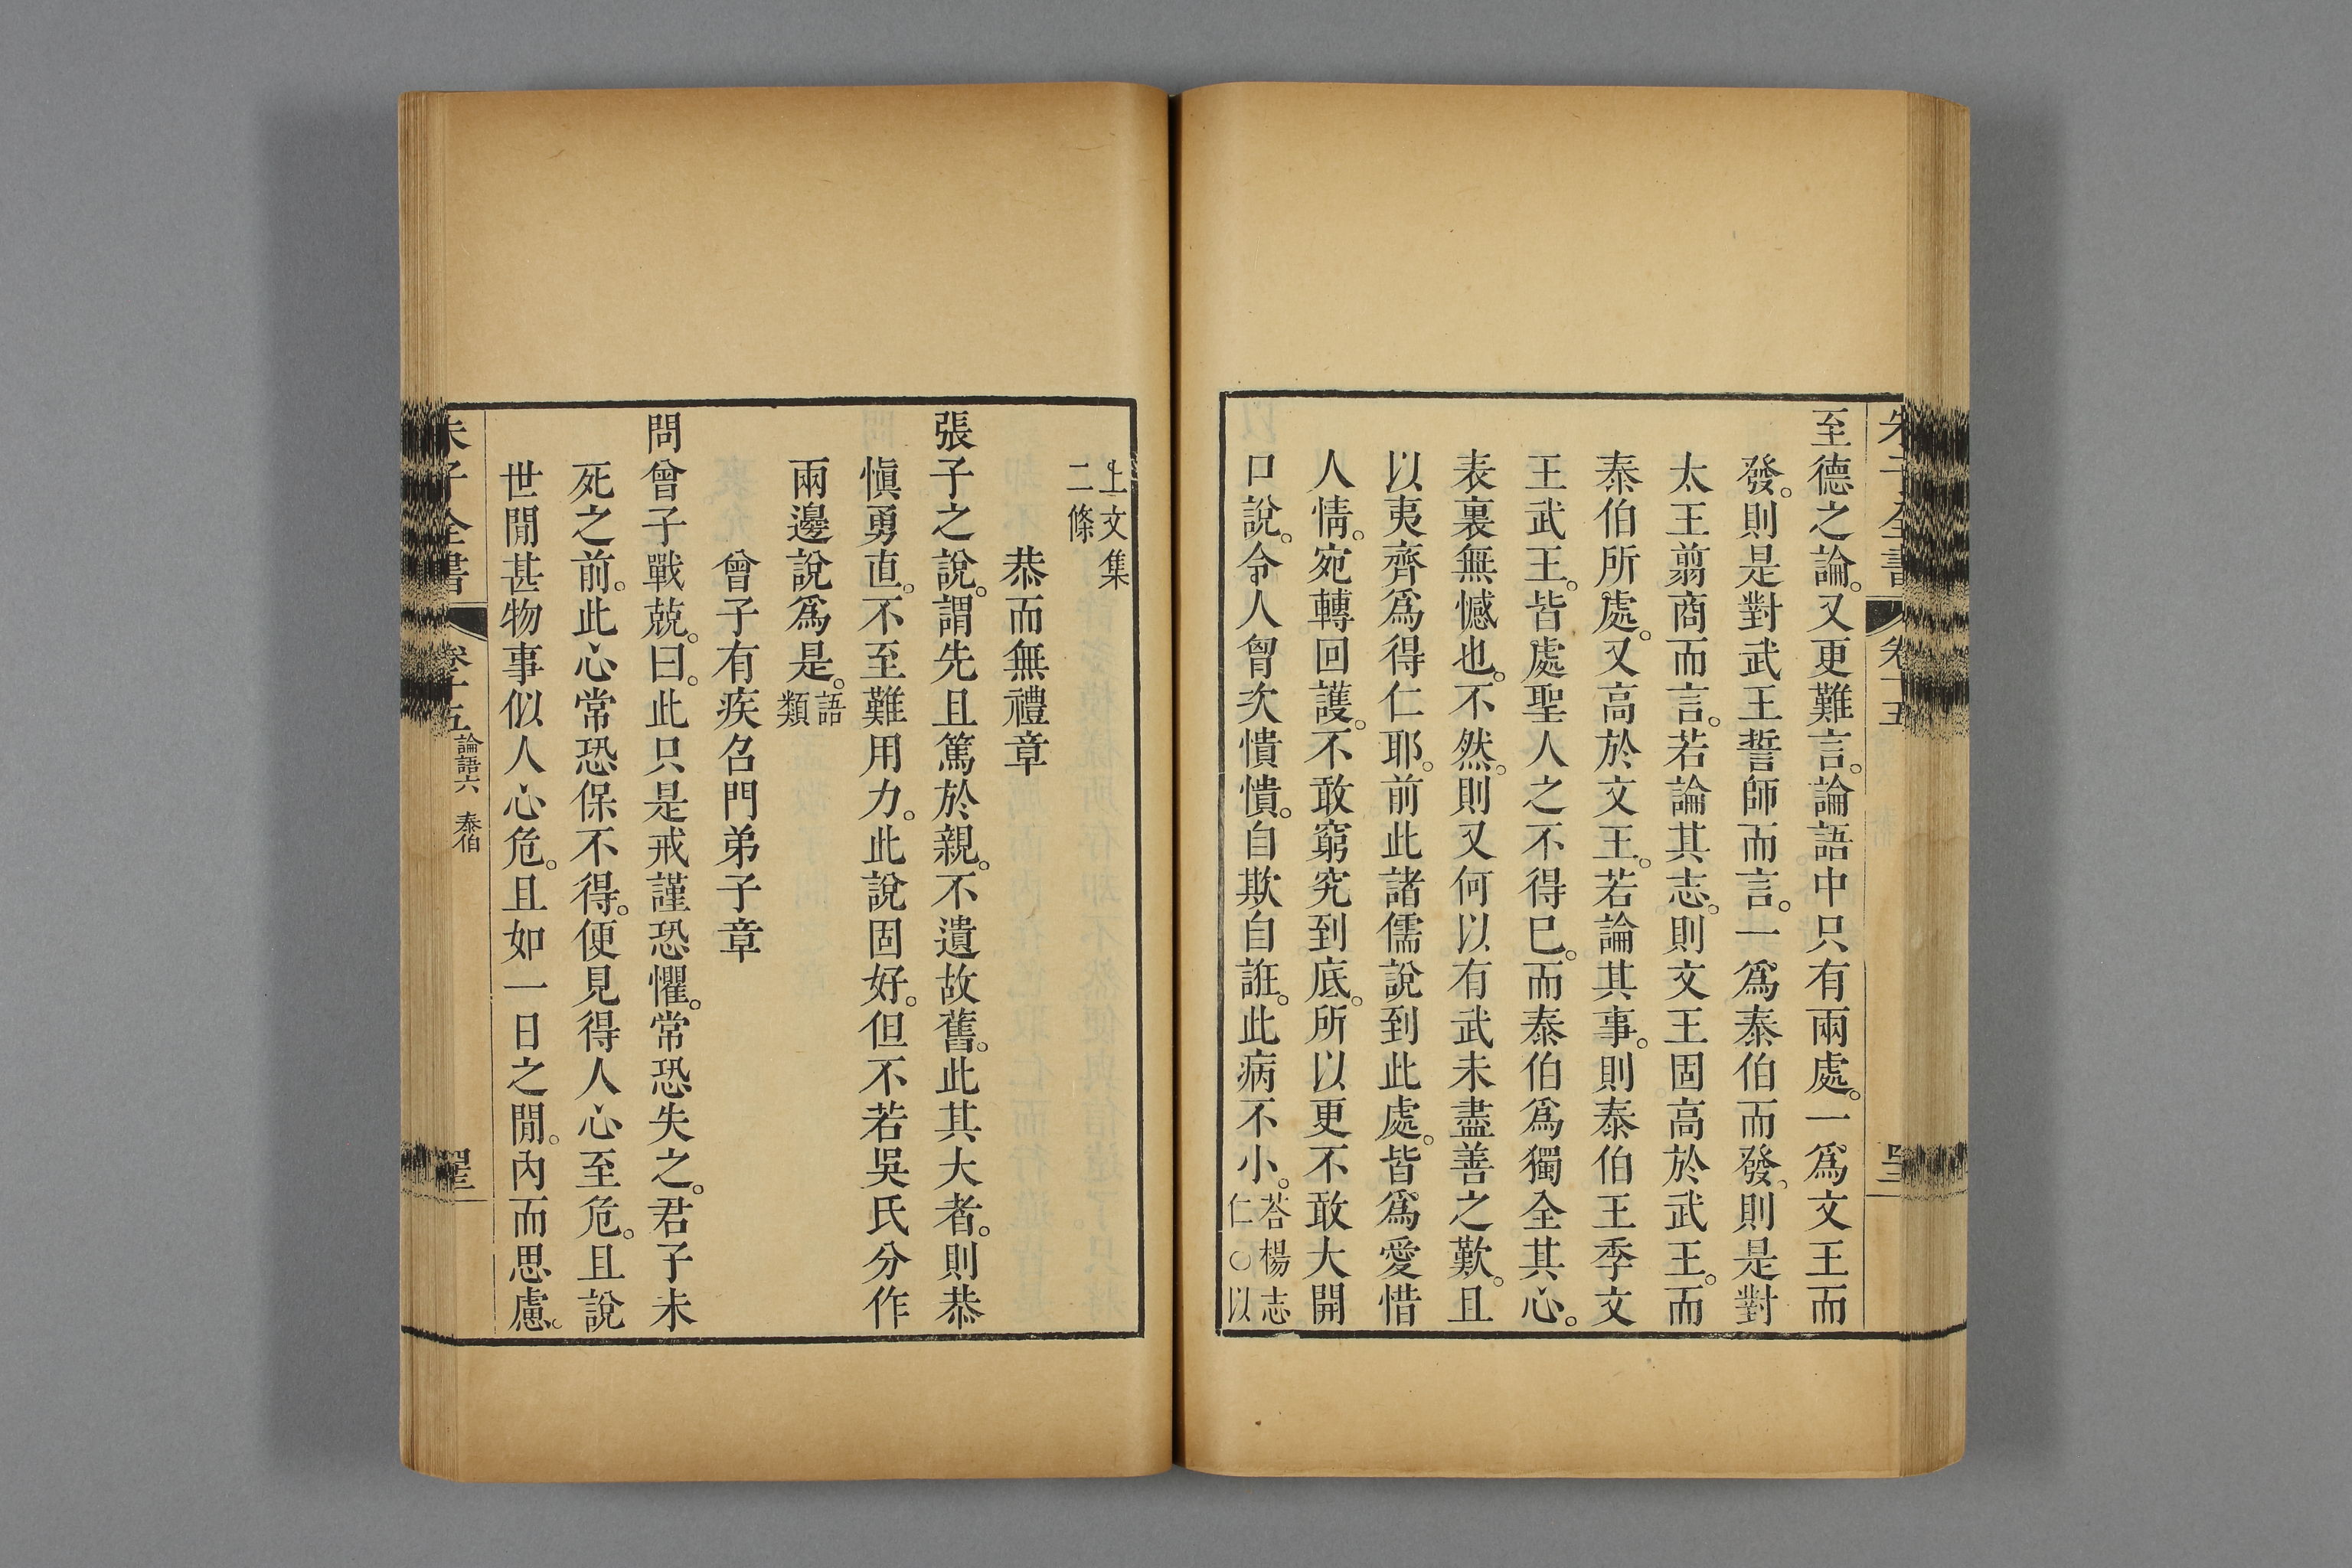 至德之論。又更難言。論語中只有兩處。一爲文王而
發。則是對武王誓師而言。一爲泰伯而發。則是對
太王翦商而言。若論其志。則文王固高於武王。而
泰伯所處。又高於文王。若論其事。則泰伯王季文
王武王。皆處聖人之不得已。而泰伯爲獨全其心。
表裏無憾也。不然。則又何以有武未盡善之歎。且
以夷齊爲得仁耶。前此諸儒說到此處。皆爲愛惜
人情。宛轉回護。不敢窮究到底。所以更不敢大開
口說。令人胷次憒憒。自欺自誑。此病不小。荅楊志仁〇以
上文集二條
恭而無禮章
張子之說。謂先且篤於親。不遺故舊。此其大者。則恭
愼勇直。不至難用力。此說固好。但不若吳氏分作
兩邊說爲是。語類
曾子有疾召門弟子章
問曾子戰兢。曰。此只是戒謹恐懼。常恐失之。君子未
死之前。此心常恐保不得。便見得人心至危。且說
世閒甚物事似人心危。且如一日之閒。內而思慮。
朱子全書 卷十五 論語六 泰伯